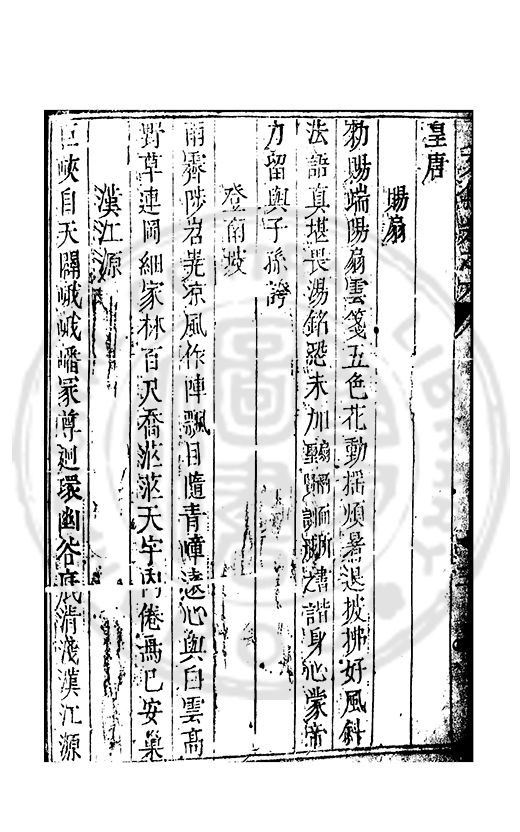 皇唐
賜扇
勑賜端陽扇雲箋五色花動搖煩暑退披拂好風斜
法語真堪畏湯銘恐未加 之諧身心蒙帝
力留與子孫誇
登南坡
雨霽陟岩嶤凉風作陣飄目隨青嶂遠心與白雲高
野草連岡細家林百尺喬茫茫天宇內倦鳥已安巢
漢江源
巨峽自天闢峨峨嶓冢尊迴環幽谷底清淺漢江源